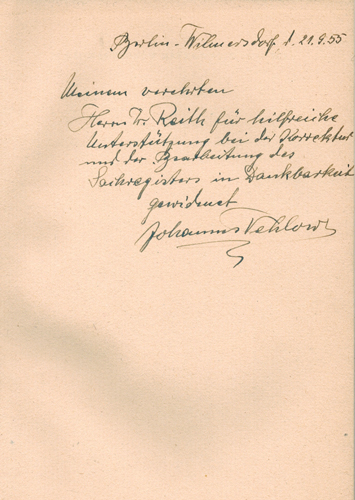 Berlin-Wilmersdorf, d. 21.9.55
Meinem verehrten
Herrn Dr. Reith für hilfreiche
Unterstützung bei der Korrektur
und der Bearbeitung des
Sachregisters in Dankbarkeit
gewidmet
Johannes Vehlow